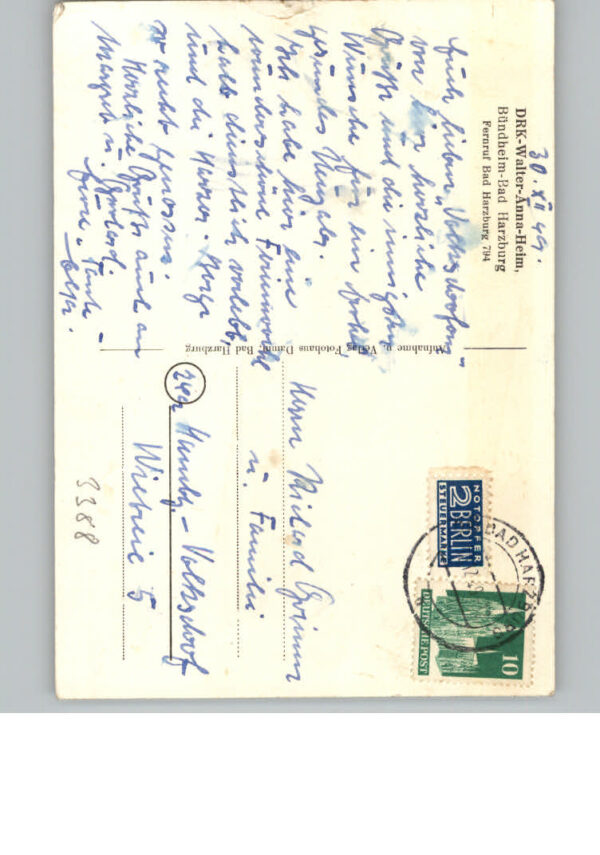 DRK-Walter-Anna-Heim,
Bündheim-Bad Harzburg
Fernruf Bad Harzburg 794
30. XII 49.
Euch lieben „Volksdorfern“
von hier herzliche
Grüße und die innigsten
Wünsche für ein frohes
gesundes Neujahr.
Ich habe hier eine
wunderschöne Ferienwoche
halb dienstlich verlebt,
und die Harzer
so recht genossen.
Herzliche Grüße auch an
Margret u. Gerhard
Eure Tante
Aufnahme u. Verlag Fotohaus Dämmr, Bad Harzburg
Herrn Richard Grimm
u. Familie
24a Hambg.-Volksdorf
Wietreie 5
3388
NOTOPFER
2 BERLIN
STEUERMARKE
BAD HARZB
DEUTSCHE POST
10